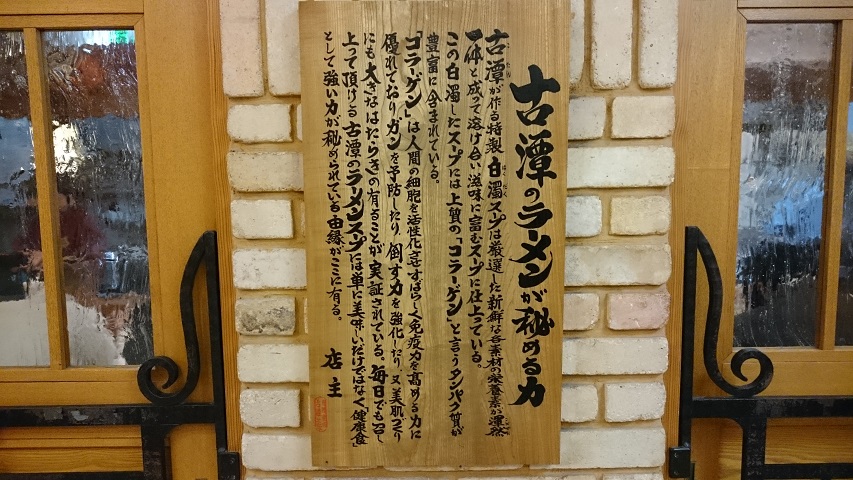 古潭のラーメンが秘める力
古潭が作る特製白濁スープは厳選した新鮮な各素材の栄養素が渾然
一体と成って溶け合い滋味に富むスープに仕上っている。
この白濁したスープには上質の「コラーゲン」と言うタンパク質が
豊富に含まれている。
「コラーゲン」は人間の細胞を活性化させすばらしく免疫力を高める力に
優れておりガンを予防したり、倒す力を強化したり又美肌づくり
にも大きなはたらきの有ることが実証されている。毎日でも召し
上って頂ける古潭のラーメンスープには単に美味しいだけではなく「健康食」
として強い力が秘められている由縁がここに有る。
店主